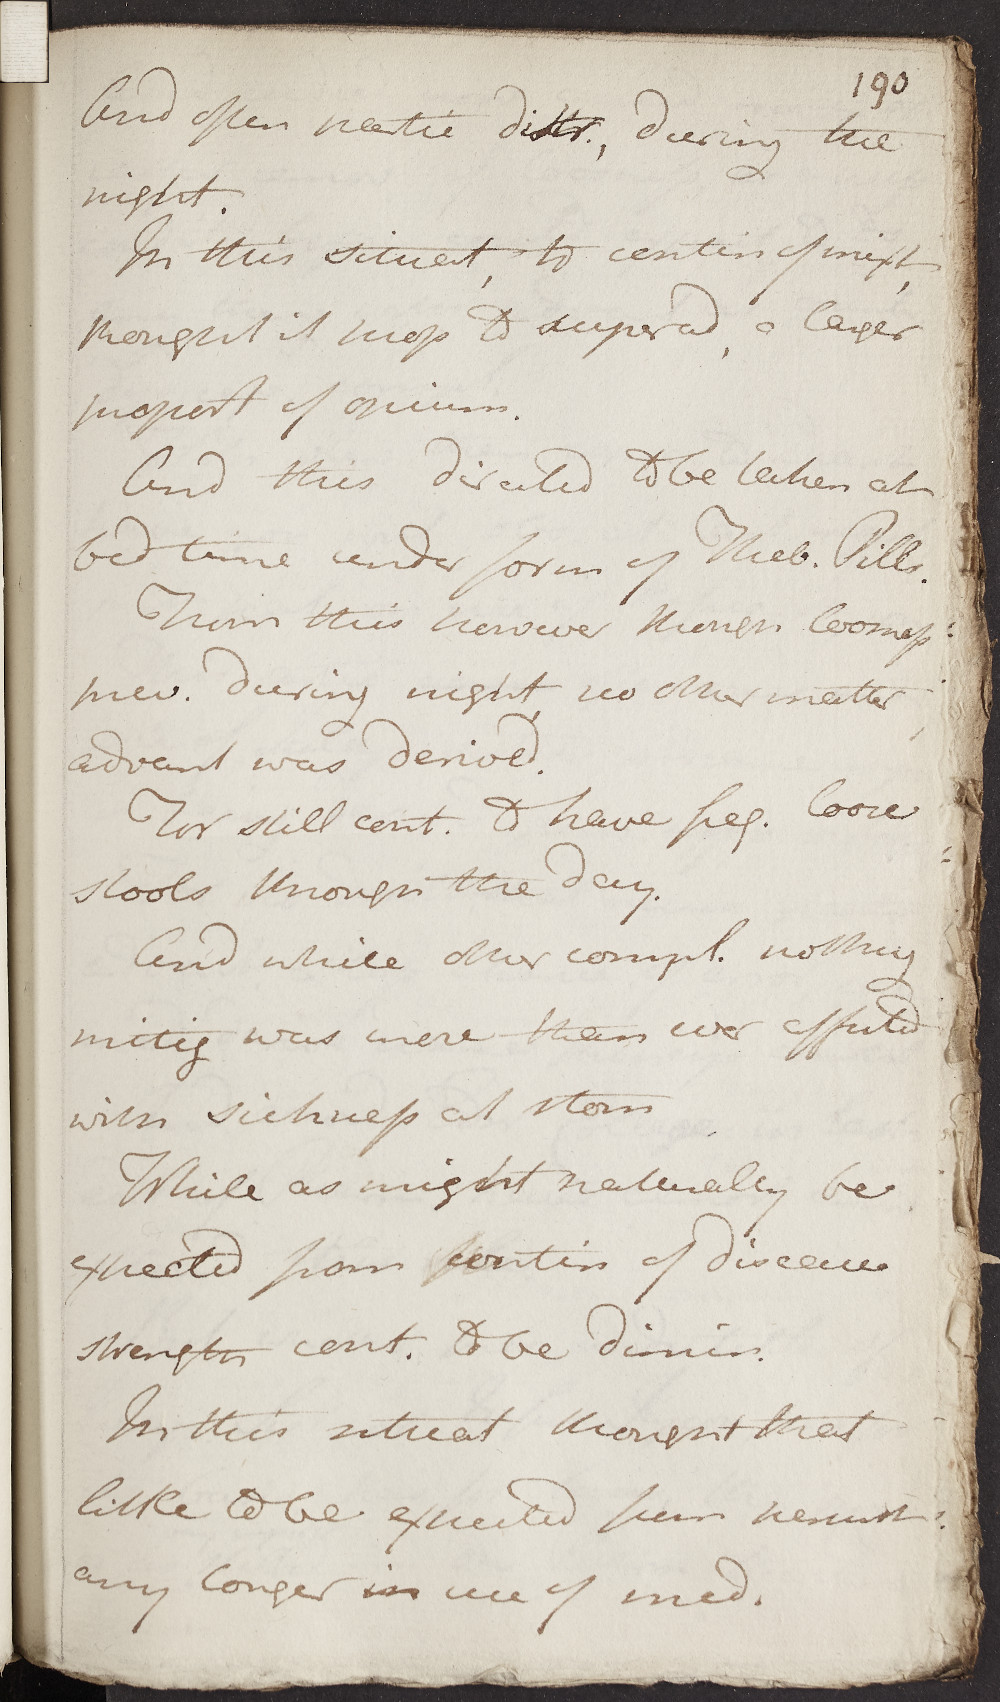 190
And often partic distr., during the
night.
In this situat, to contin of mixt,
thought it prop to superad, a larger
proport of opium.
And this directed to be taken at
bed time under form of Theb. Pills.
From this however though loosness
prev. during night, no other matter
advant was derived.
For still cont. to have freq. loose
stools through the day.
And while other compl. nothing
mitig was more than ever affected
with sickness at stom
While as might naturally be
expected from contin of disease
strength cont. to be dimin.
In this situat thought that
little to be expected from persist
any longer in use of med.